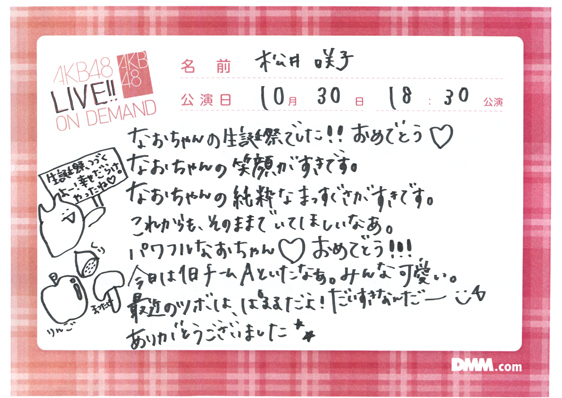 AKB48
LIVE!!
ON DEMAND
AKB
48
名前 松井咲子
公演日 10月30日 18:30公演
なおちゃんの生誕祭でした!! おめでとう♡
なおちゃんの笑顔がすきです。
なおちゃんの純粋なまっすぐさがすきです。
これからも、そのままでいてほしいなあ。
パワフルなおちゃん♡おめでとう!!!
今日は1日チームAといたなあ。みんな可愛い。
最近のツボは、はるるだよ!だいすきなんだー
ありがとうございました
生誕祭つづく
幸せだらけ
やったね♡
くり
りんご
DMM.com